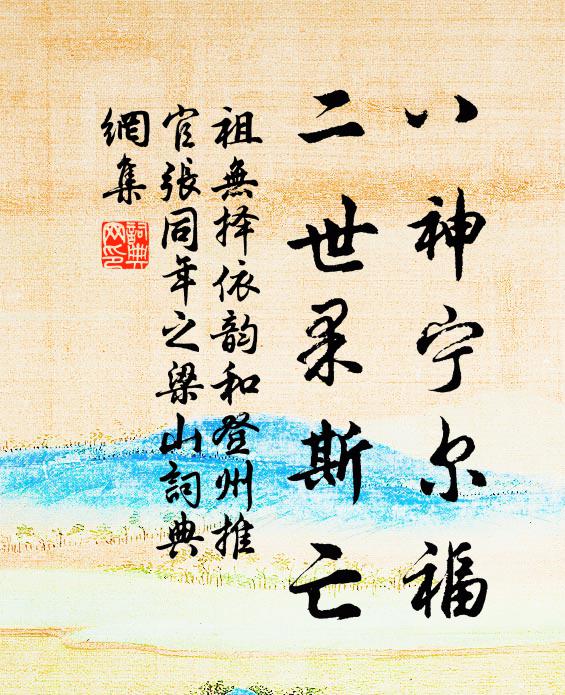 八神宁尔福
二世果斯亡
祖無择依韵和登州推
官張同年之梁山詞典
網集
詞典
网印